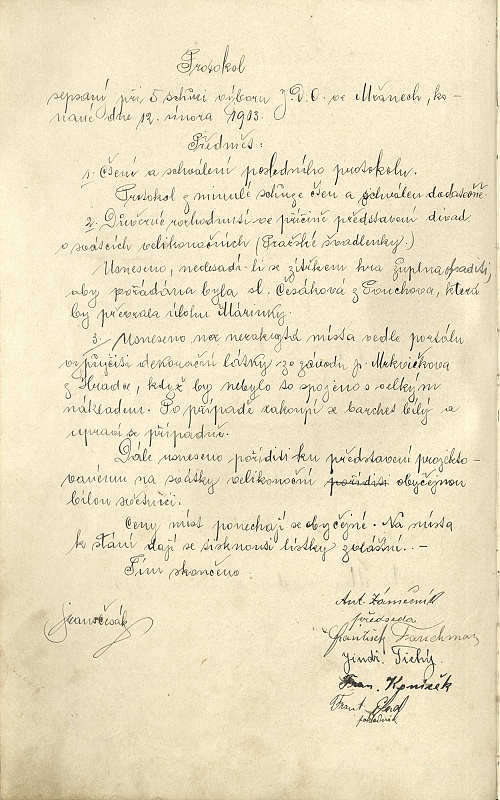 Protokol
sepsaný při 5 schůzi výboru J.D.O. ve Mžanech, ko-
nané dne 12. února 1913.
Předmět:
1. Čtení a schválení posledního protokolu.
Protokol z minulé schůze čten a schválen dodatečně.
2. Důvěrné rozhodnutí ve příčině představení divad.
o svátcích velikonočních (Pražské švadlenky.)
Usneseno, nedosadí-li se zítřkem hra úplna obsaditi,
aby požádána byla sl. Česáková z Louchova, která
by převzala úlohu Márinky.
3. Usneseno na nezakrytá místa vedle portálu
vypůjčiti dekorační látky ze závodu p. Mrkvičkova
z Hradce, když by nebylo to spojeno s velkým
nákladem. Po případě zakoupí se barchet bílý a
upraví se případně.
Dále usneseno poříditi ku představení projekto-
vanému na svátky velikonoční poříditi obyčejnou
bílou světnici.
Ceny míst ponechají se obyčejné. Na místa
k stání dají se tisknouti lístky zvláštní. –
Tím skončeno.
Ant. Zámečník
předseda
František Fauchman
Jindř. Tichý
Fran. Kpnizěk
Frant.
pokladník